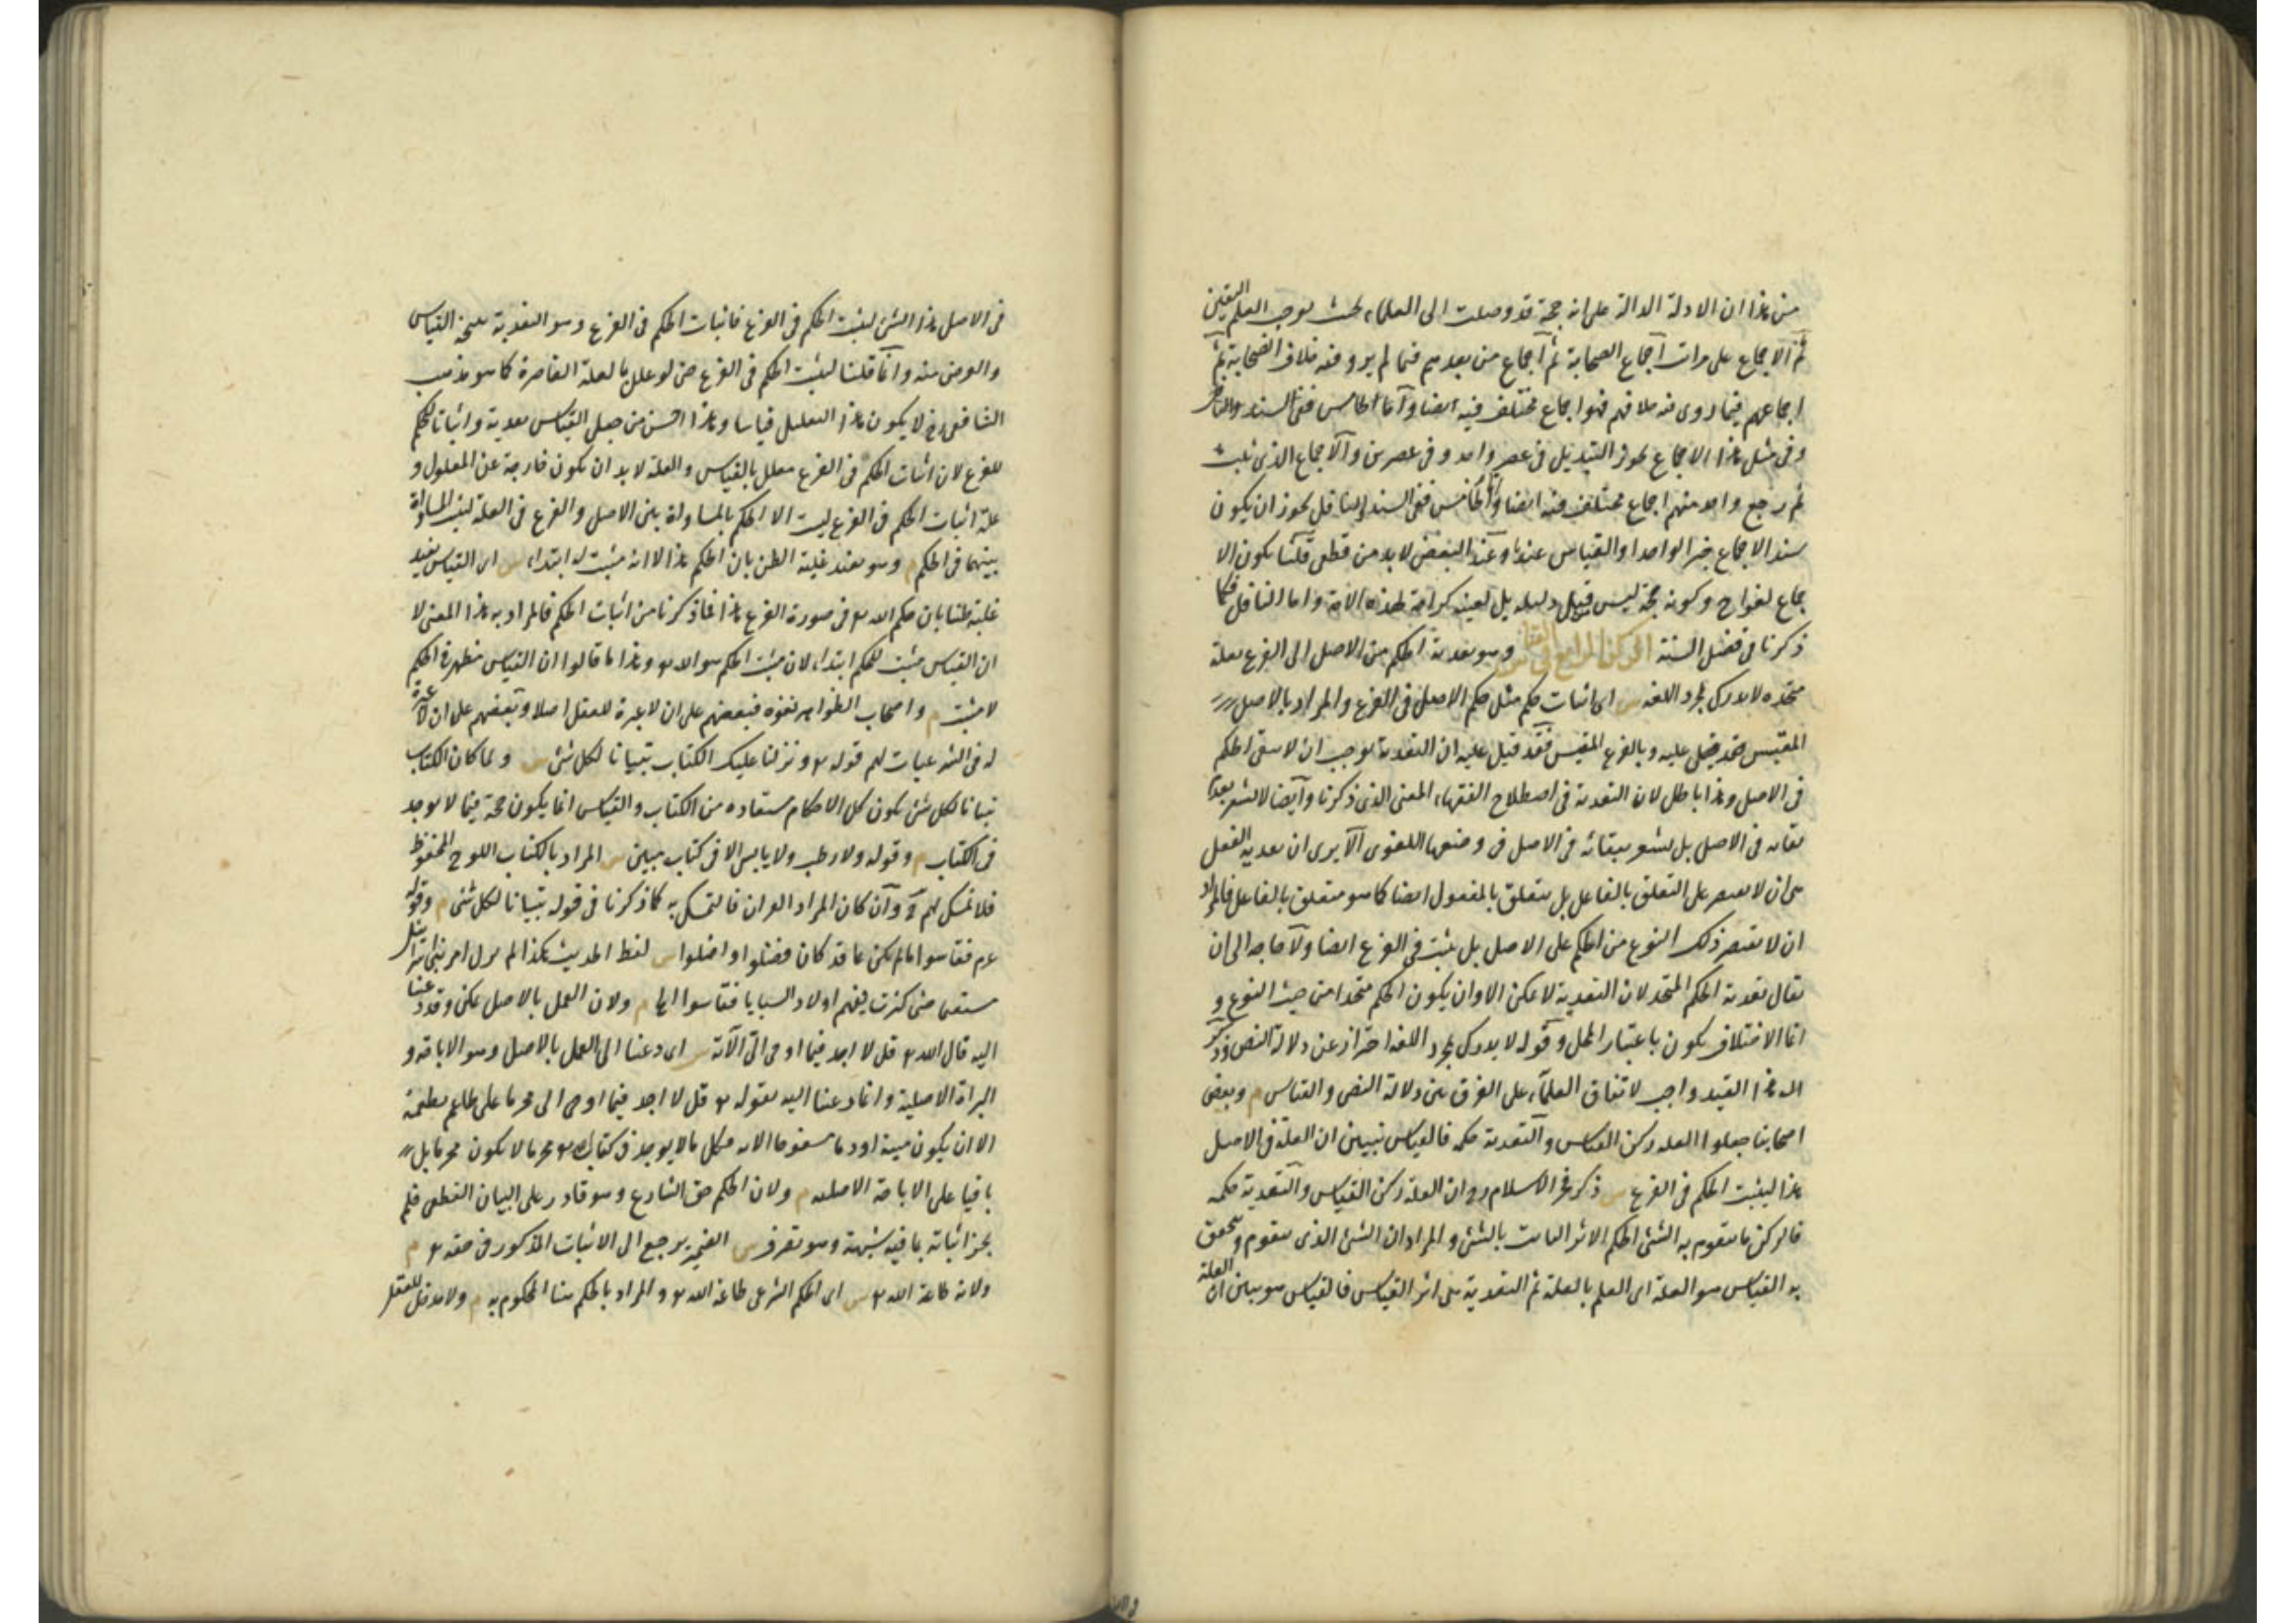 من هذا ان الادلة الدالة على انه حجة قد وصلت الى العلماء بحيث يوجب العلم اليقين
ثم الاجماع على مراتب اجماع الصحابة ثم اجماع من بعدهم فيما لم يرو فيه خلاف الصحابة ثم
اجماعهم فيما روى فيه خلافهم فهو اجماع مختلف فيه ايضا واما الخامس ففى السند والناقل
وفى مثل هذا الاجماع يجوز التبديل فى عصر واحد وفى عصرين والاجماع الذى ثبت
ثم رجع واحد منهم اجماع مختلف فيه ايضا واما الخامس ففى السند والناقل يجوز ان يكون
سند الاجماع خبر الواحد او القياس عندنا وعند البعض لا بد من قطعى قلنا يكون الا
جماع لغوا ح وكونه حجة ليس من قبل دليله بل لعينه كرامة لهذه الامة واما الناقل فكما
ذكرنا فى فصل السنة الركن الرابع فى القياس وهو تعدية الحكم من الاصل الى الفرع بعلة
متحدة لا تدرك بمجرد اللغة س اى اثبات حكم مثل حكم الاصل فى الفرع والمراد بالاصل
المقيس عليه وبالفرع المقيس فقد قيل عليه ان التعدية توجب ان لا يبقى الحكم
فى الاصل وهذا باطل لان التعدية فى اصطلاح الفقهاء المعنى الذى ذكرنا وايضا لا تشعر بعدم
بقائه فى الاصل بل تشعر ببقائه فى الاصل فى وضعها اللغوى الا يرى ان تعدية الفعل
هى ان لا يقتصر على التعلق بالفاعل بل يتعلق بالمفعول ايضا كما هو متعلق بالفاعل فالمراد
ان لا يقتصر ذلك النوع من الحكم على الاصل بل يثبت فى الفرع ايضا ولا حاجة الى ان
يقال تعدية الحكم المتحد لان التعدية لا تمكن الا وان يكون الحكم متحدا من حيث النوع و
انما الاختلاف يكون باعتبار المحل وقوله لا يدرك بمجرد اللغة احتراز عن دلالة النص وذكر
هذا القيد واجب لاتفاق العلماء على الفرق بين دلالة النص والقياس م وبعض
اصحابنا جعلوا العلة ركن القياس والتعدية حكمه فالقياس تبيين ان العلة فى الاصل
هذا ليثبت الحكم فى الفرع س ذكر فخر الاسلام رح ان العلة ركن القياس والتعدية حكمه
فالركن ما يتقوم به الشئ والحكم الاثر الثابت بالشئ والمراد ان الشئ الذى يتقوم ويتحقق
به القياس هو العلة اى العلم بالعلة ثم التعدية هى اثر القياس فالقياس هو تبيين ان العلة
فى الاصل هذا الشئ ليثبت الحكم فى الفرع فاثبات الحكم فى الفرع وهو التعدية نتيجة القياس
والغرض منه وانما قلنا ليثبت الحكم فى الفرع حتى لو علل بالعلة القاصرة كما هو مذهب
الشافعى رح لا يكون هذا التعليل قياسا وهذا احسن من جعل القياس تعدية واثباتا للحكم
للفرع لان اثبات الحكم فى الفرع معلل بالقياس والعلة لا بد ان تكون خارجة عن المعلول و
علة اثبات الحكم فى الفرع ليست الا الحكم بالمساواة بين الاصل والفرع فى العلة ليثبت المساواة
بينهما فى الحكم م وهو يفيد غلبة الظن بان الحكم هذا لا انه مثبت له ابتداء س اى القياس يفيد
غلبة ظننا بان حكم الله تع فى صورة الفرع هذا فما ذكرنا من اثبات الحكم فالمراد به هذا المعنى لا
ان القياس مثبت للحكم ابتداء لان مثبت الحكم هو الله تع وهذا ما قالوا ان القياس مظهر للحكم
لا مثبت م واصحاب الظواهر نفوه فبعضهم على ان لا عبرة للعقل اصلا وبعضهم على ان لا عبرة
له فى الشرعيات لهم قوله تع ونزلنا عليك الكتاب تبيانا لكل شئ س ولما كان الكتاب
تبيانا لكل شئ يكون كل الاحكام مستفادة من الكتاب والقياس انما يكون حجة فيما لا يوجد
فى الكتاب م وقوله ولا رطب ولا يابس الا فى كتاب مبين س المراد بالكتاب اللوح المحفوظ
فلا تمسك لهم ح وان كان المراد القران فالتمسك به كما ذكرنا فى قوله تبيانا لكل شئ م وقوله
عم فقاسوا ما لم يكن بما قد كان فضلوا واضلوا س لفظ الحديث هكذا لم يزل امر بنى اسرائيل
مستقيما حتى كثرت فيهم اولاد السبايا فقاسوا الخ م ولان العمل بالاصل ممكن وقد دعينا
اليه قال الله تع قل لا اجد فيما اوحى الى الآية س اى دعينا الى العمل بالاصل وهو الاباحة و
البراءة الاصلية وانما دعينا اليه بقوله تع قل لا اجد فيما اوحى الى محرما على طاعم يطعمه
الا ان يكون ميتة او دما مسفوحا الاية فكل ما لا يوجد فى كتاب الله تع محرما لا يكون محرما بل
باقيا على الاباحة الاصلية م ولان الحكم حق الشارع وهو قادر على البيان القطعى فلم
يجز اثباته بما فيه شبهة وهو تصرف س الضمير يرجع الى الاثبات المذكور فى حقه تع م
ولانه طاعة الله تع س اى الحكم الشرعى طاعة الله تع والمراد بالحكم هنا المحكوم به م ولا مدخل للعقل